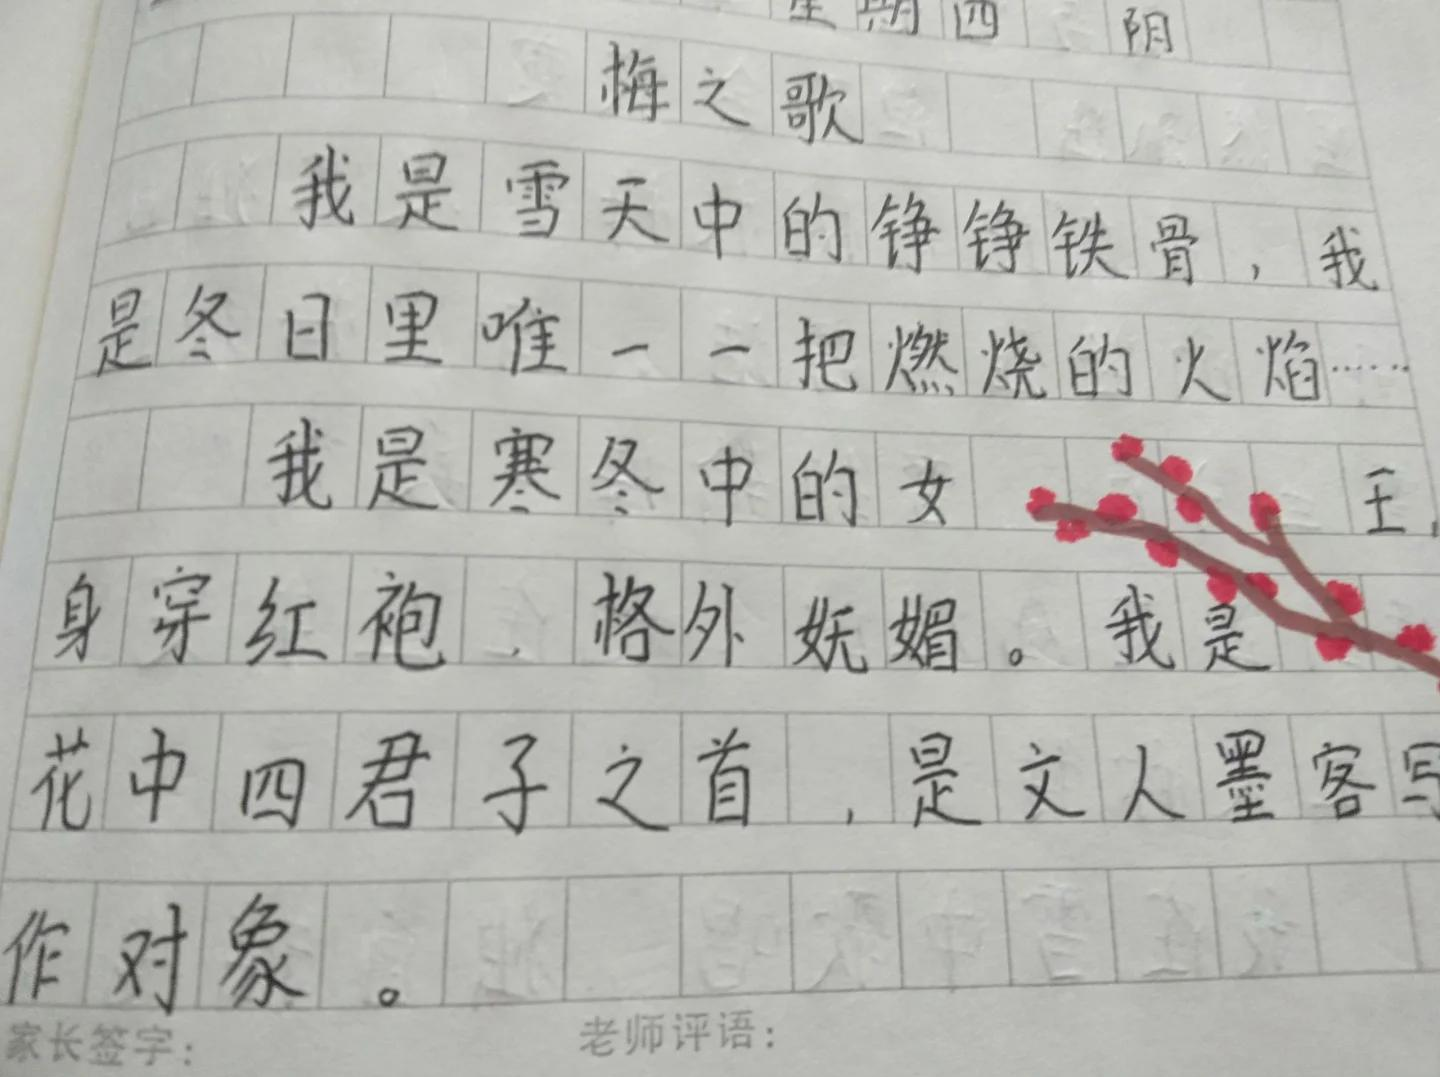 星期四 阴
梅之歌
我是雪天中的铮铮铁骨，我
是冬日里唯一一把燃烧的火焰……
我是寒冬中的女王，
身穿红袍，格外妩媚。我是
花中四君子之首，是文人墨客写
作对象。
家长签字： 老师评语：